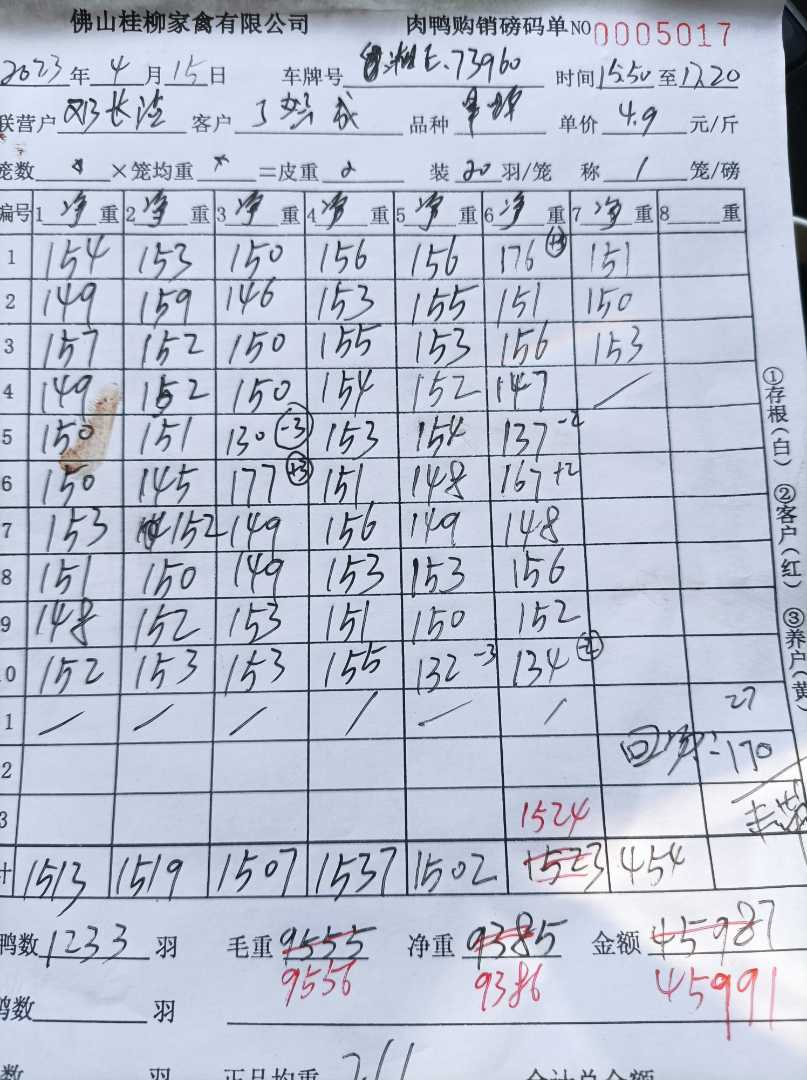 佛山桂柳家禽有限公司 肉鸭购销磅码单 NO 0005017
2023年4月15日 车牌号 E·73960 时间15.50至17.20
联营户 邓长 客户 成 品种 单价 4.9 元/斤
笼数 ×笼均重 =皮重 装 20 羽/笼 称 1 笼/磅
编号 1 净 重 2 净 重 3 净 重 4 净 重 5 净 重 6 净 重 7 净 重 8 重
1 154 153 150 156 156 176 151
2 149 159 146 153 155 151 150
3 157 152 150 155 153 156 153
4 149 152 150 154 152 147 /
5 150 151 130 -3 153 154 137 -2
6 150 145 177 +3 151 148 167 +2
7 153 152 149 156 149 148
8 151 150 149 153 153 156
9 148 152 153 151 150 152
10 152 153 153 155 132 -3 134
1 / / / / / / 27
2 回净: -170
3 1524
计 1513 1519 1507 1537 1502 1523 454
鸭数 1233 羽 毛重 9555 净重 9385 金额 45987
9556 9386 45991
鸭数 羽
数 羽 正品均重 合计总金额
①存根(白) ②客户(红) ③养户(黄)